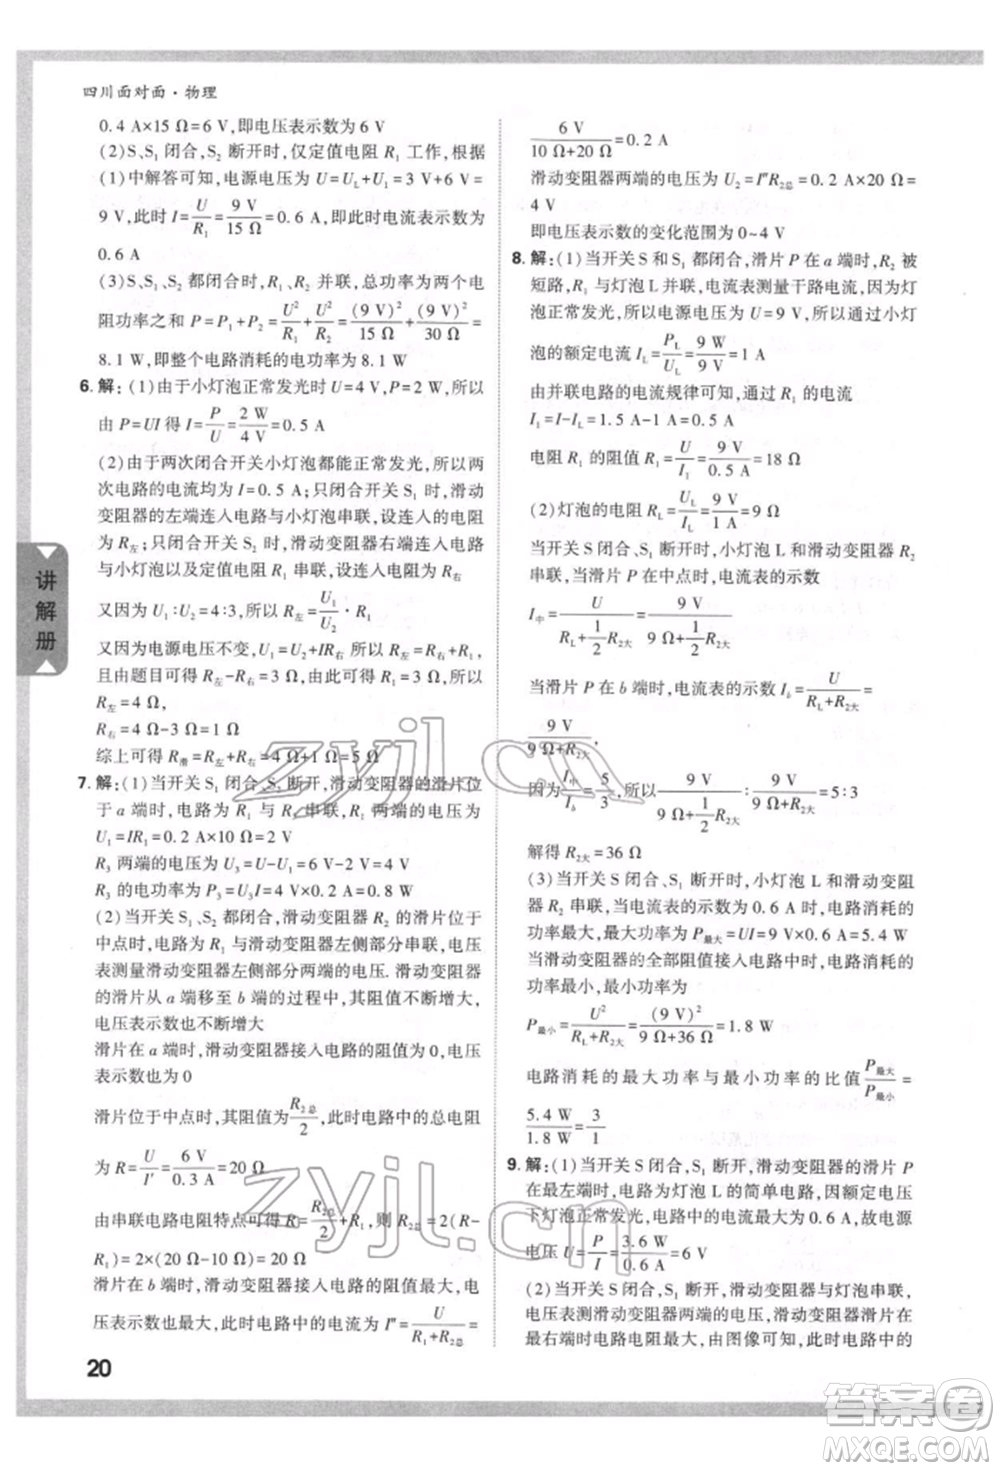 四川面对面·物理
0.4 A×15 Ω=6 V,即电压表示数为 6 V
(2)S、S₁ 闭合,S₂ 断开时,仅定值电阻 R₁ 工作,根据
(1)中解答可知,电源电压为 U=U_L+U₁=3 V+6 V=
9 V,此时 I=U/R₁=9 V/15 Ω=0.6 A,即此时电流表示数为
0.6 A
(3)S、S₁、S₂ 都闭合时,R₁、R₂ 并联,总功率为两电
阻功率之和 P=P₁+P₂=U²/R₁+U²/R₂=(9 V)²/15 Ω+(9 V)²/30 Ω=
8.1 W,即整个电路消耗的电功率为 8.1 W
6. 解:(1)由于小灯泡正常发光时 U=4 V,P=2 W,所以
由 P=UI 得 I=P/U=2 W/4 V=0.5 A
(2)由于两次闭合开关小灯泡都能正常发光,所以两
次电路的电流均为 I=0.5 A;只闭合开关 S₁ 时,滑动
变阻器的左端连入电路与小灯泡串联,设连入的电阻
为 R左;只闭合开关 S₂ 时,滑动变阻器右端连入电路
与小灯泡以及定值电阻 R₁ 串联,设连入电阻为 R右
又因为 U₁∶U₂=4∶3,所以 R左=U₁/U₂·R₁
又因为电源电压不变,U₁=U₂+IR右
且由题目可得 R左-R右=3 Ω,所以
R左=4 Ω,
R右=4 Ω-3 Ω=1 Ω
综上可得 R滑=R左+R右=4 Ω+1 Ω=5 Ω
7. 解:(1)当开关 S₁ 闭合、S₂ 断开,滑动变阻器的滑片位
于 a 端时,电路为 R₁ 与 R₃ 串联,R₁ 两端的电压为
U₁=IR₁=0.2 A×10 Ω=2 V
R₃ 两端的电压为 U₃=U-U₁=6 V-2 V=4 V
R₃ 的电功率为 P₃=U₃I=4 V×0.2 A=0.8 W
(2)当开关 S₁、S₂ 都闭合,滑动变阻器 R₂ 的滑片位于
中点时,电路为 R₁ 与滑动变阻器左侧部分串联,电压
表测量滑动变阻器左侧部分两端的电压. 滑动变阻器
的滑片从 a 端移至 b 端的过程中,其阻值不断增大,
电压表示数也不断增大
滑片在 a 端时,滑动变阻器接入电路的阻值为 0,电压
表示数也为 0
滑片位于中点时,其阻值为R₂总/2,此时电路中的总电阻
为 R=U/I′=6 V/0.3 A=20 Ω
由串联电路电阻特点可得 R=R₂总/2+R₁,则 R₂总=2(R-
R₁)=2×(20 Ω-10 Ω)=20 Ω
滑片在 b 端时,滑动变阻器接入电路的阻值最大,电压
表示数也最大,此时电路中的电流为 I″=U/(R₁+R₂总)=
6 V/(10 Ω+20 Ω)=0.2 A
滑动变阻器两端的电压为 U₂=I″R₂总=0.2 A×20 Ω=
4 V
即电压表示数的变化范围为 0~4 V
8. 解:(1)当开关 S 和 S₁ 都闭合,滑片 P 在 a 端时,R₂ 被
短路,R₁ 与灯泡 L 并联,电流表测量干路电流,因为灯
泡正常发光,所以电源电压为 U=9 V,所以此时小灯
泡的额定电流 I_L=P_L/U_L=9 W/9 V=1 A
由并联电路的电流规律可知,通过 R₁ 的电流
I₁=I-I_L=1.5 A-1 A=0.5 A
电阻 R₁ 的阻值 R₁=U/I₁=9 V/0.5 A=18 Ω
(2)灯泡的电阻为 R_L=U_L/I_L=9 V/1 A=9 Ω
当开关 S 闭合、S₁ 断开时,小灯泡 L 和滑动变阻器 R₂
串联,当滑片 P 在中点时,电流表的示数
I中=U/(R_L+1/2R₂大)=9 V/(9 Ω+1/2R₂大)
当滑片 P 在 b 端时,电流表的示数 I_b=U/(R_L+R₂大)=
9 V/(9 Ω+R₂大),
因为I中/I_b=5/3,所以9 V/(9 Ω+1/2R₂大)∶9 V/(9 Ω+R₂大)=5∶3
解得 R₂大=36 Ω
(3)当开关 S 闭合、S₁ 断开时,小灯泡 L 和滑动变阻
器 R₂ 串联,当电流表的示数为 0.6 A 时,电路消耗的
功率最大,P最大=UI=9 V×0.6 A=5.4 W
当滑动变阻器的全部阻值接入电路中时,电路消耗的
功率最小,最小功率为
P最小=U²/(R_L+R₂大)=(9 V)²/(9 Ω+36 Ω)=1.8 W
电路消耗的最大功率与最小功率的比值P最大/P最小=
5.4 W/1.8 W=3/1
9. 解:(1)当开关 S 闭合、S₁ 断开,滑动变阻器的滑片 P
在最左端时,电路为灯泡 L 的简单电路,因额定电压
下灯泡正常发光,电路中的电流最大为 0.6 A,故电源
电压 U=P/I=3.6 W/0.6 A=6 V
(2)当开关 S 闭合、S₁ 断开时,滑动变阻器与灯泡串联,
电压表测滑动变阻器两端的电压,滑动变阻器滑片在
最右端时电路电阻最大,由图像可知,此时电路中的
讲解册
20
zyjl.cn
zyjl.cn
答案圈
MXQE.COM